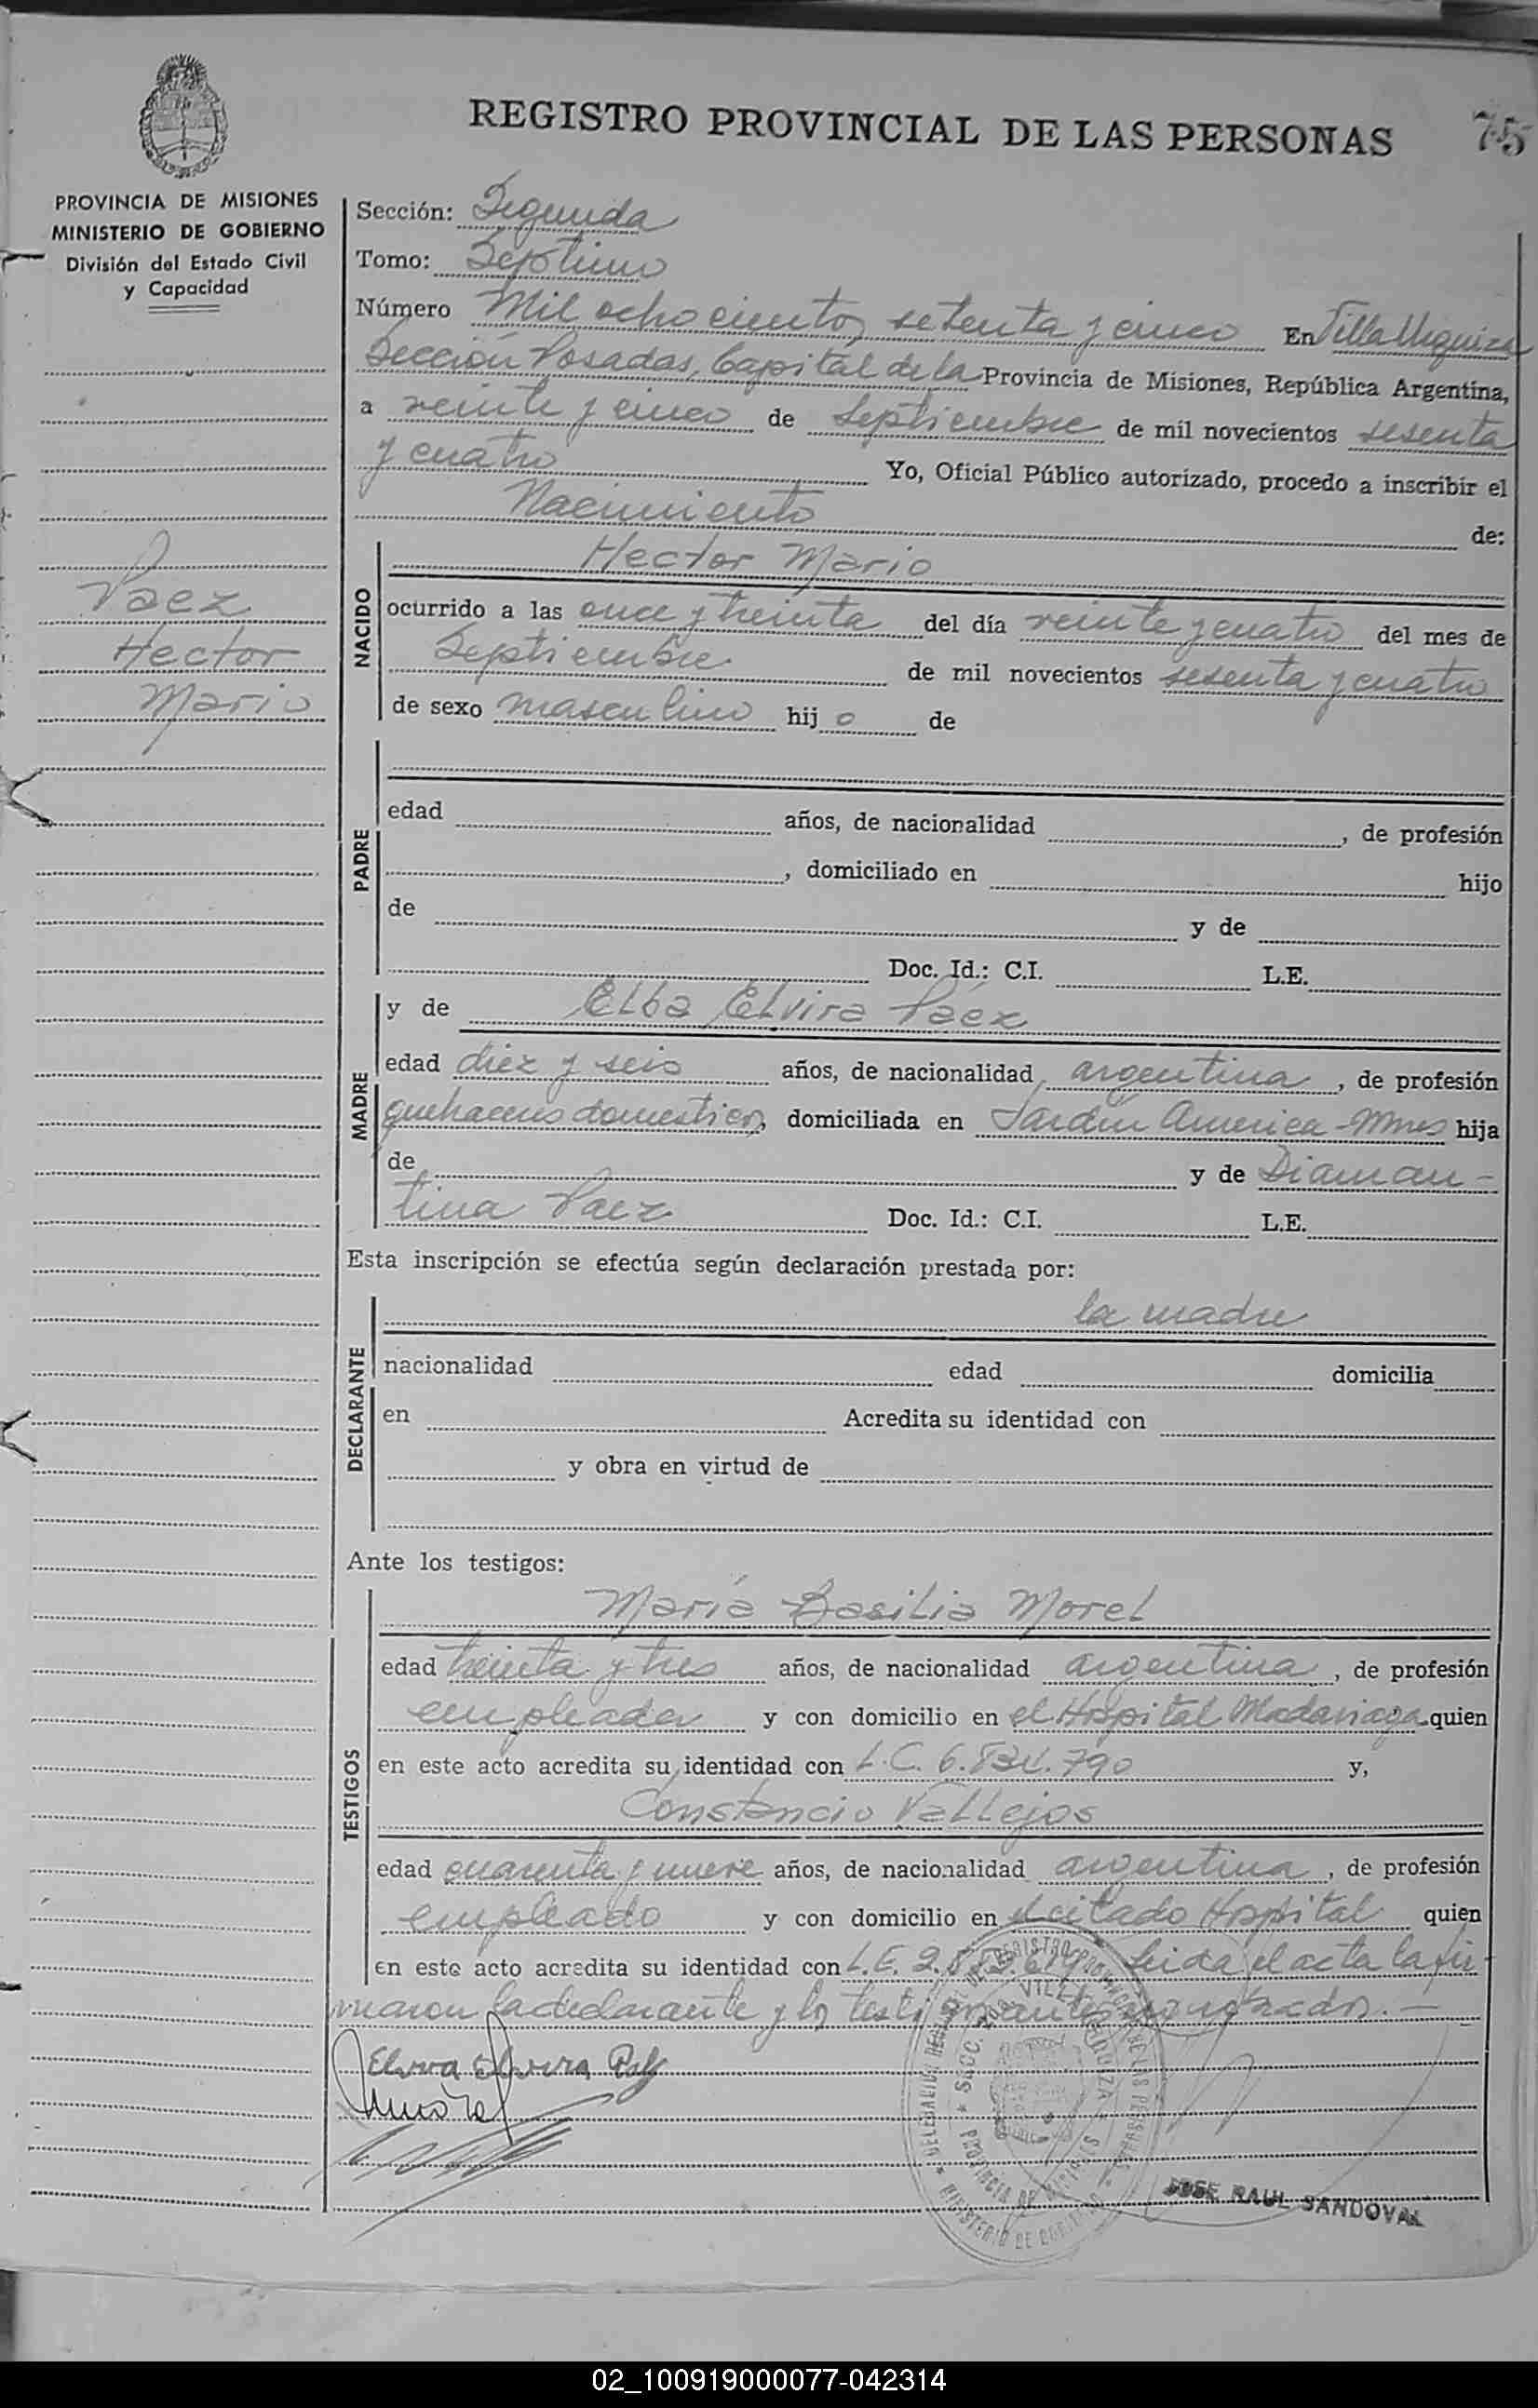 REGISTRO PROVINCIAL DE LAS PERSONAS 75
PROVINCIA DE MISIONES
MINISTERIO DE GOBIERNO
División del Estado Civil
y Capacidad
Paez
Hector
Mario
Sección: Segunda
Tomo: Septimo
Número Mil ochocientos setenta y cinco En Villa Urquiza
Sección Posadas, Capital de la Provincia de Misiones, República Argentina,
a veinte y cinco de Septiembre de mil novecientos sesenta
y cuatro Yo, Oficial Público autorizado, procedo a inscribir el
Nacimiento de:
NACIDO
Hector Mario
ocurrido a las once y treinta del día veinte y cuatro del mes de
Septiembre de mil novecientos sesenta y cuatro
de sexo masculino hijo de
PADRE
edad años, de nacionalidad , de profesión
, domiciliado en hijo
de y de
Doc. Id.: C.I. L.E.
MADRE
y de Elba Elvira Paéz
edad diez y seis años, de nacionalidad argentina, de profesión
quehaceres domesticos, domiciliada en Jardín America-Mnes hija
de y de Diaman-
tina Paez Doc. Id.: C.I. L.E.
Esta inscripción se efectúa según declaración prestada por:
DECLARANTE
la madre
nacionalidad edad domicilia
en Acredita su identidad con
y obra en virtud de
Ante los testigos:
TESTIGOS
María Basilia Morel
edad treinta y tres años, de nacionalidad argentina, de profesión
empleada y con domicilio en el Hospital Madariaga quien
en este acto acredita su identidad con L.C. y,
Constancio Vallejos
edad cuarenta y nueve años, de nacionalidad argentina, de profesión
empleado y con domicilio en el citado Hospital quien
en este acto acredita su identidad con L.E. Leida el acta la fir-
maron la declarante y los testi
JOSE RAUL SANDOVAL
02_100919000077-042314